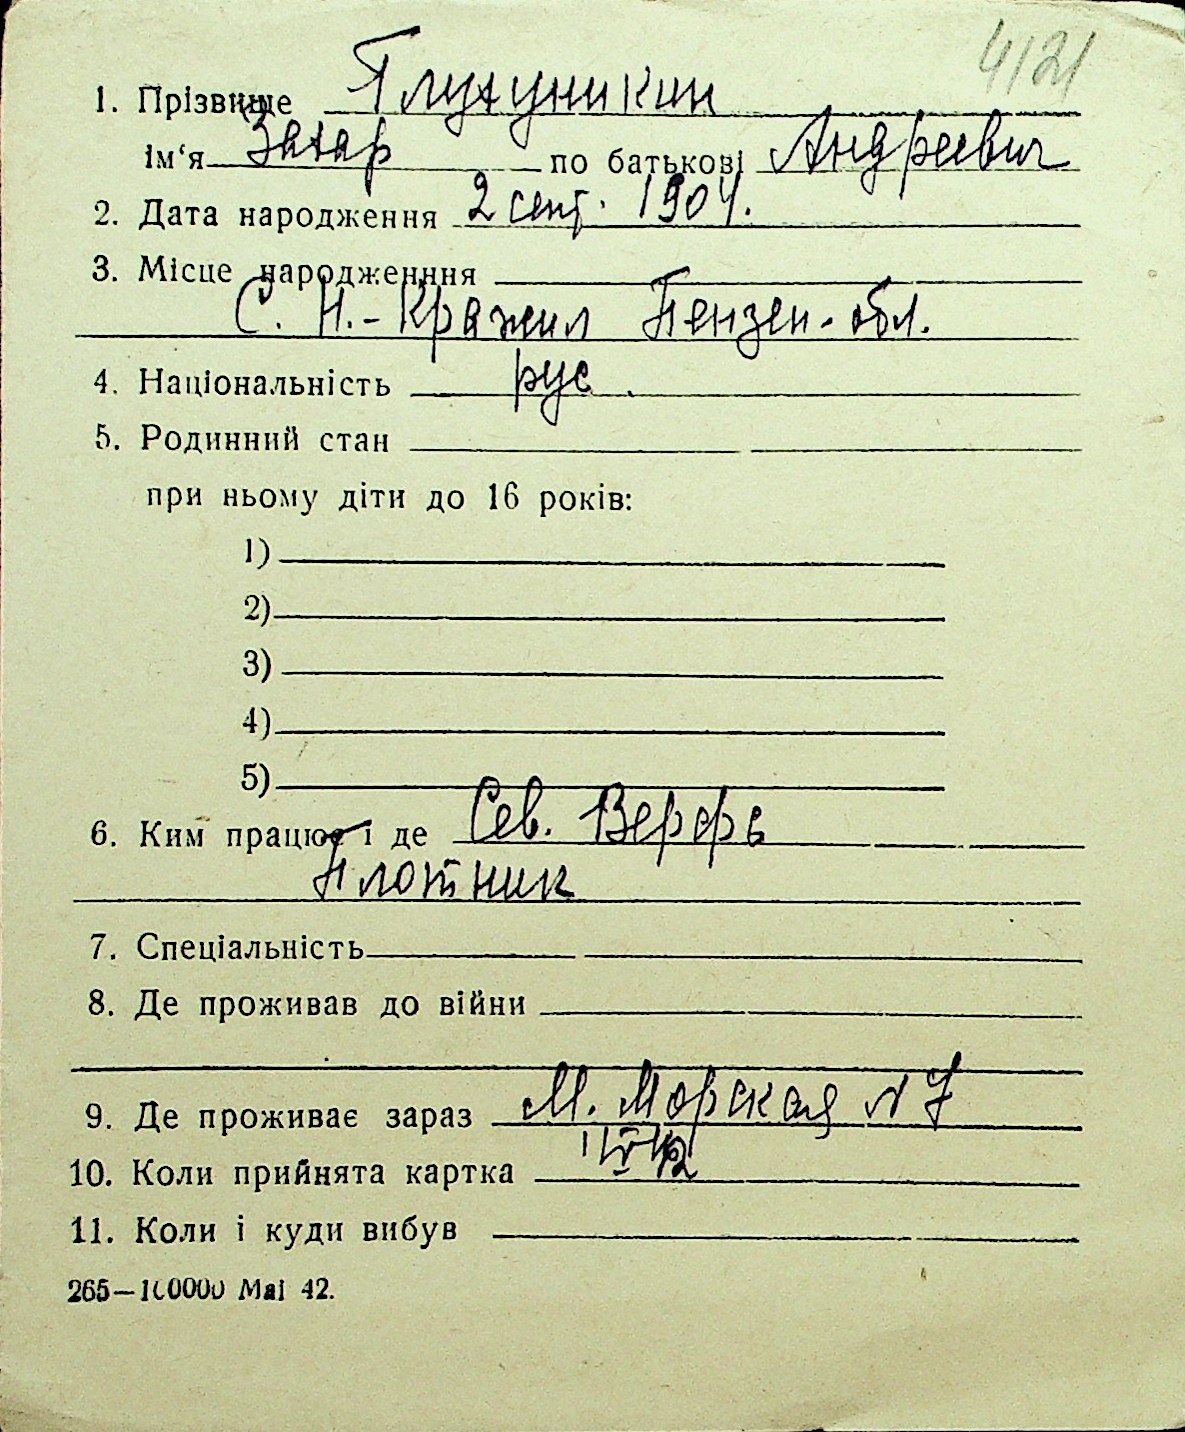 4121
1. Прізвище Плухуникин
ім‘я Захар по батькові Андреевич
2. Дата народження 2 сент. 1904.
3. Місце народженння
С. Н.-Кряжим Пензен. обл.
4. Національність рус.
5. Родинний стан
при ньому діти до 16 років:
1)
2)
3)
4)
5)
6. Ким працює і де Сев. Верфь
Плотник
7. Спеціальність
8. Де проживав до війни
9. Де проживає зараз М. Морская N 7
10. Коли прийнята картка
11. Коли і куди вибув
265—100000 Mai 42.